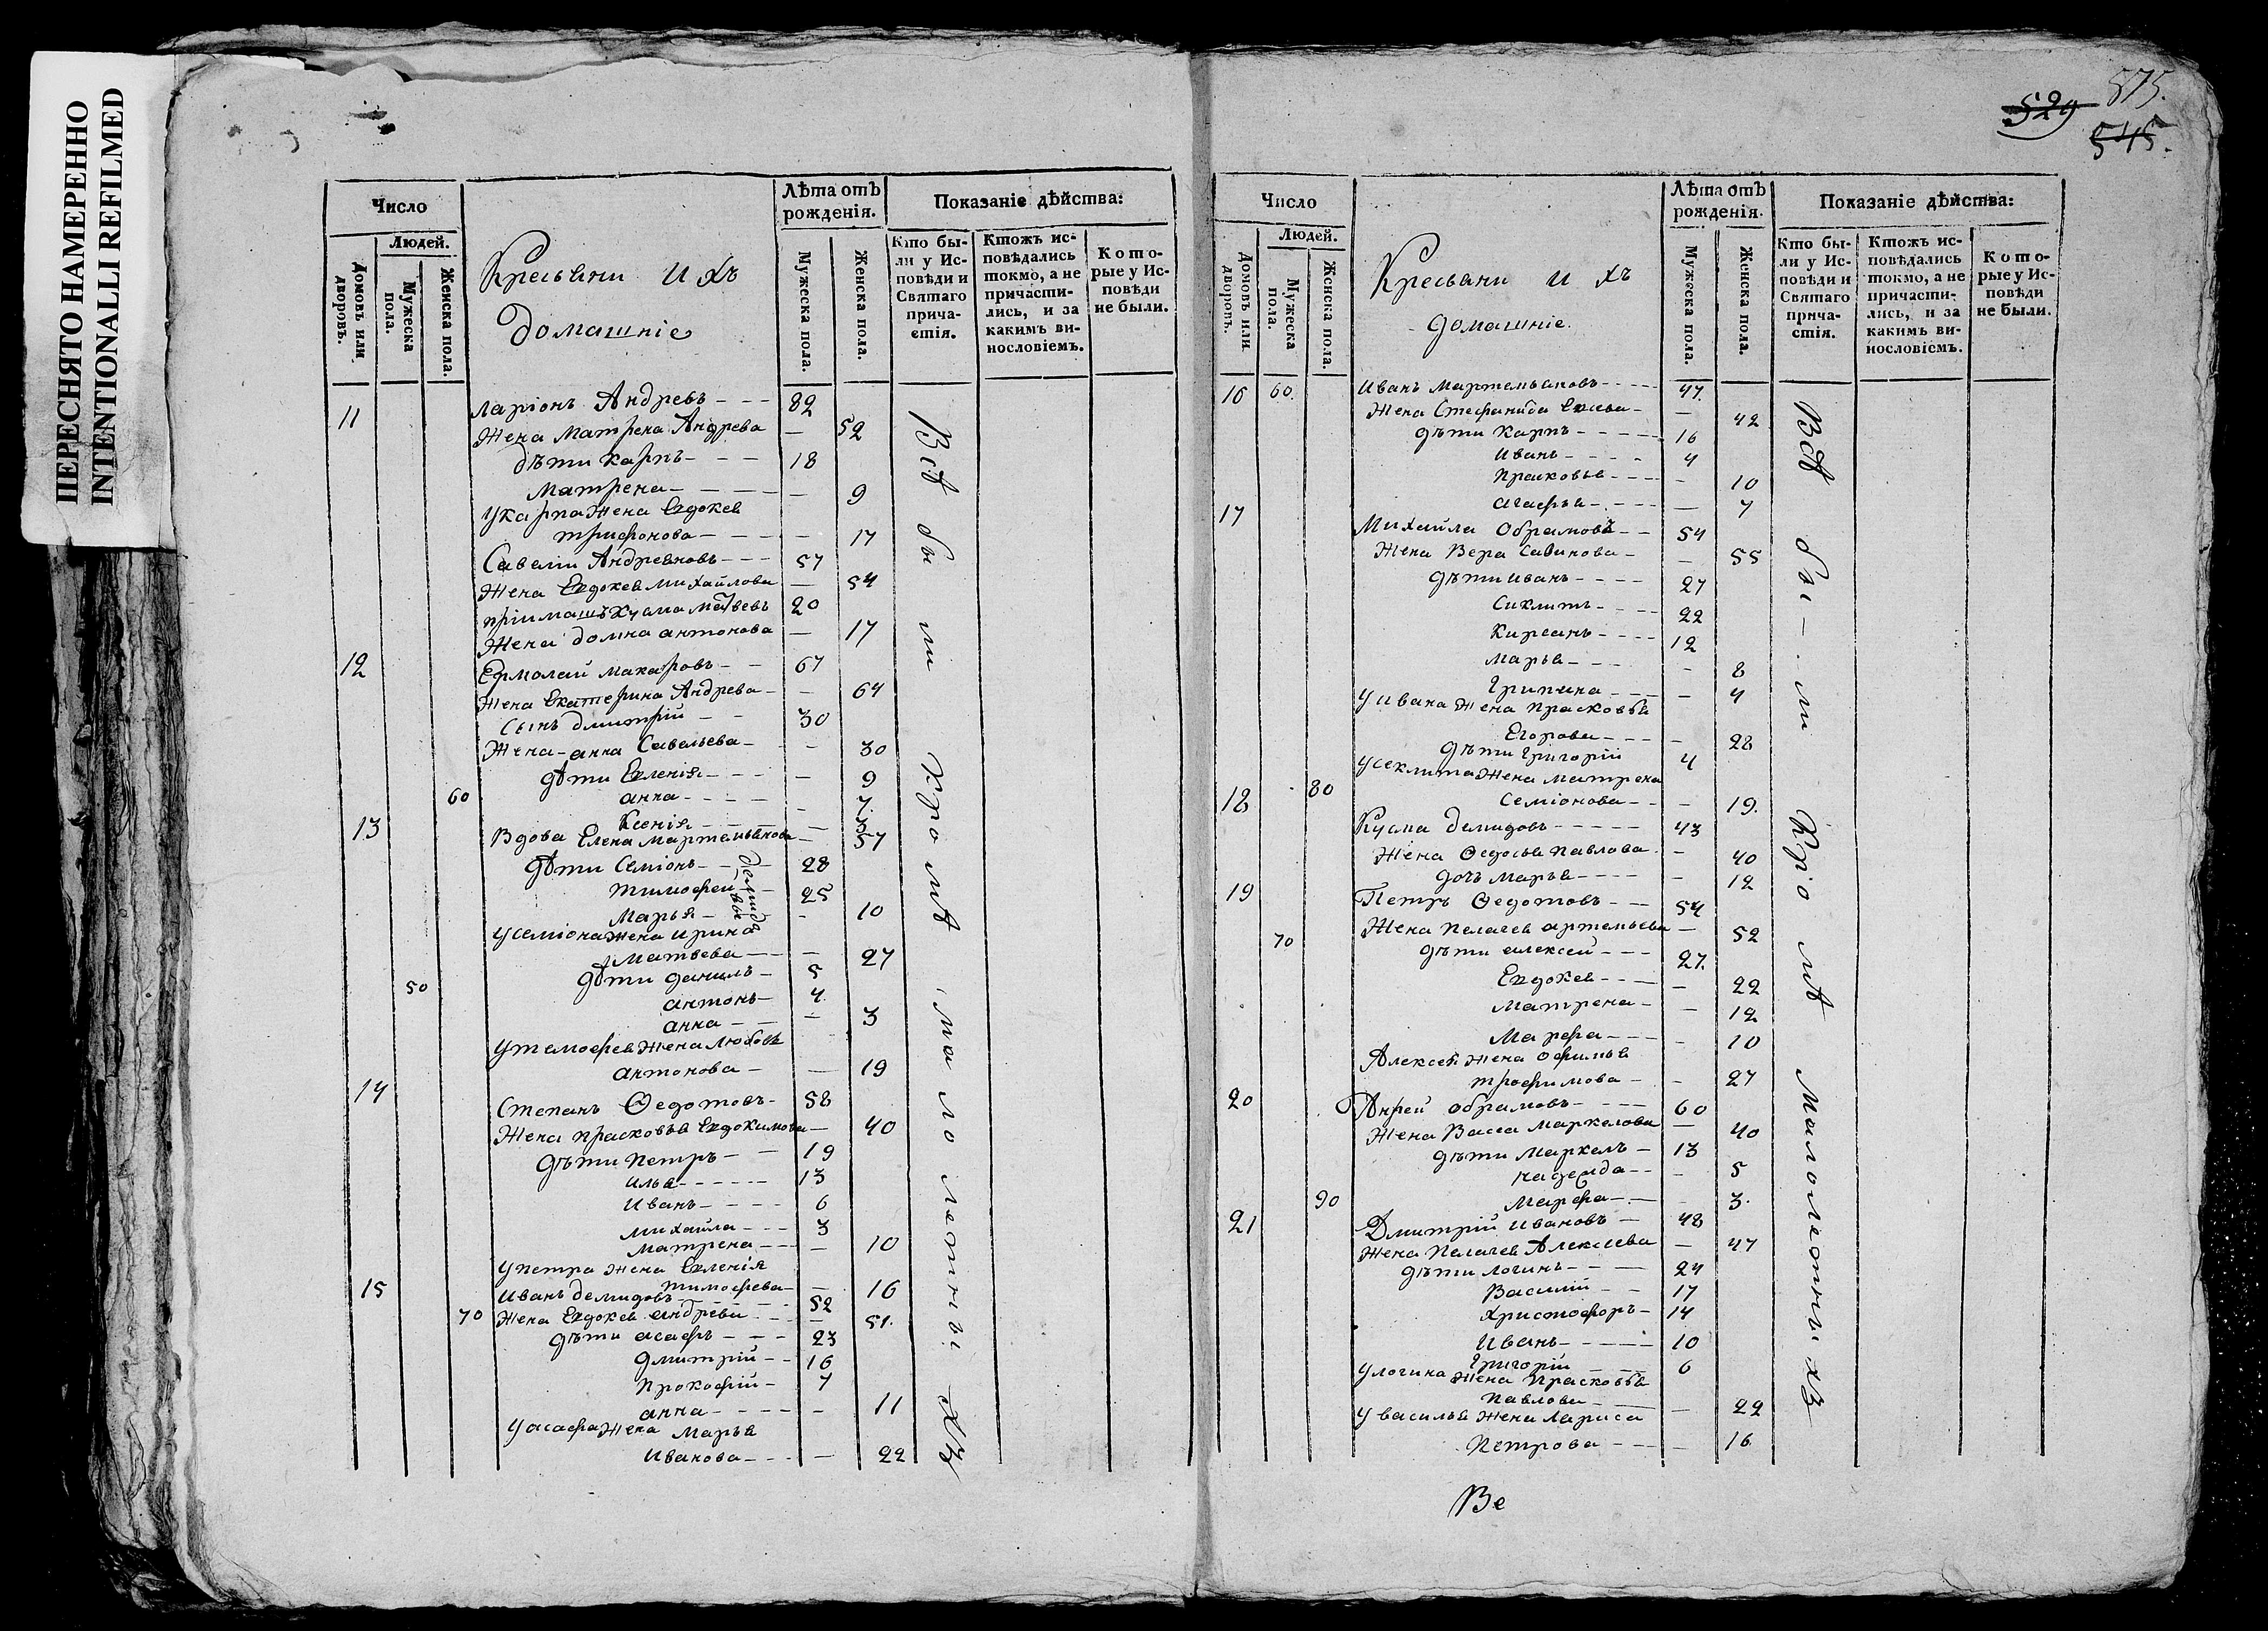 ПЕРЕСНЯТО НАМЕРЕННО
INTENTIONALLI REFILMED
Число
Людей.
Домовъ или дворовъ.
Мужеска пола.
Женска пола.
Кресьяни ихъ
домашніе
Лѣта отъ рожденія.
Мужеска пола.
Женска пола.
Показаніе дѣйства:
Кто были у Исповѣди и Святаго причастія.
Ктожъ исповѣдались токмо, а не причастились, и за какимъ винословіемъ.
Которые у Исповѣди не были.
11 Ларіонъ Андревъ 82
Жена Матрена Андрева — 52
дѣти Карпъ 18
Матрена — 9
У карпа жена Евдокея
трифонова — 17
Савелій Андреяновъ 57
Жена Евдокея михайлова — 54
пріимашъ Кузма Матвевъ 20
Жена домна антонова — 17
12 Ермолай макаровъ 67
Жена Екатерина Андрева — 64
сынъ дмитрій 30
Жена анна Савельева — 30
дѣти Евгенія — 9
60 анна — 7.
Ксенія — 3
13 Вдова Елена Мартемьянова — 57
дѣти Семіонъ 28
тимофей 25
Марья — 10
Демидовы
у семіона жена ирина
матвева — 27
дѣти данилъ 5
50 антонъ 4
анна — 3
у темофея жена Любовь
антонова — 19
14 Степанъ Ѳедотовъ 58
Жена прасковья Евдокимова — 40
дѣти петръ 19
илья 13
иванъ 6
михайла 3
матрена — 10
у петра жена Евгенія
тимофева — 16
15 Иванъ демидовъ 52
70 Жена Евдокея андреева — 51.
дѣти асафъ 23
дмитрій 16
прокофій 7
анна — 11
у асафа жена марья
иванова — 22
Всѣ были Кромѣ малолетныхъ
529 575.
545.
Число
Людей.
Домовъ или дворовъ.
Мужеска пола.
Женска пола.
Кресьяни ихъ
домашніе.
Лѣта отъ рожденія.
Мужеска пола.
Женска пола.
Показаніе дѣйства:
Кто были у Исповѣди и Святаго причастія.
Ктожъ исповѣдались токмо, а не причастились, и за какимъ винословіемъ.
Которые у Исповѣди не были.
16 60. Иванъ Мартемьяновъ 47.
Жена Стефанида — 42
дѣти карпъ 16
иванъ 4
прасковья — 10
агафья — 7
17 Михаила Обрамовъ 54
Жена Вера Савинова — 55
дѣти иванъ 27
Сиклитъ 22
Кирсанъ 12
марья — 8
Грипина — 4
у ивана жена прасковья
Егорова — 28
дѣти григорій 4
у секлита жена матрена
80 Семіонова — 19.
18 Кузма демидовъ 43
Жена Ѳедосья павлова — 40
дочъ марья — 12
19 Петръ Ѳедотовъ 54
Жена пелагея артемьева — 52
70 дѣти алексей 27.
Евдокея — 22
Матрена — 12
Марфа — 10
Алексей жена офимья
трофимова — 27
20 Анрей обрамовъ 60
Жена Васса маркелова — 40
дѣти Маркелъ 13
надежда — 5
90 Марфа — 3.
21 Дмитрій ивановъ 48
Жена пелагея Алексеева — 47
дѣти логинъ 24
Василій 17
христофоръ 14
иванъ 10
Григорій 6
у логина жена прасковья
павлова — 22
у василья жена лариса
петрова — 16
Всѣ были Кромѣ малолетныхъ
Ве